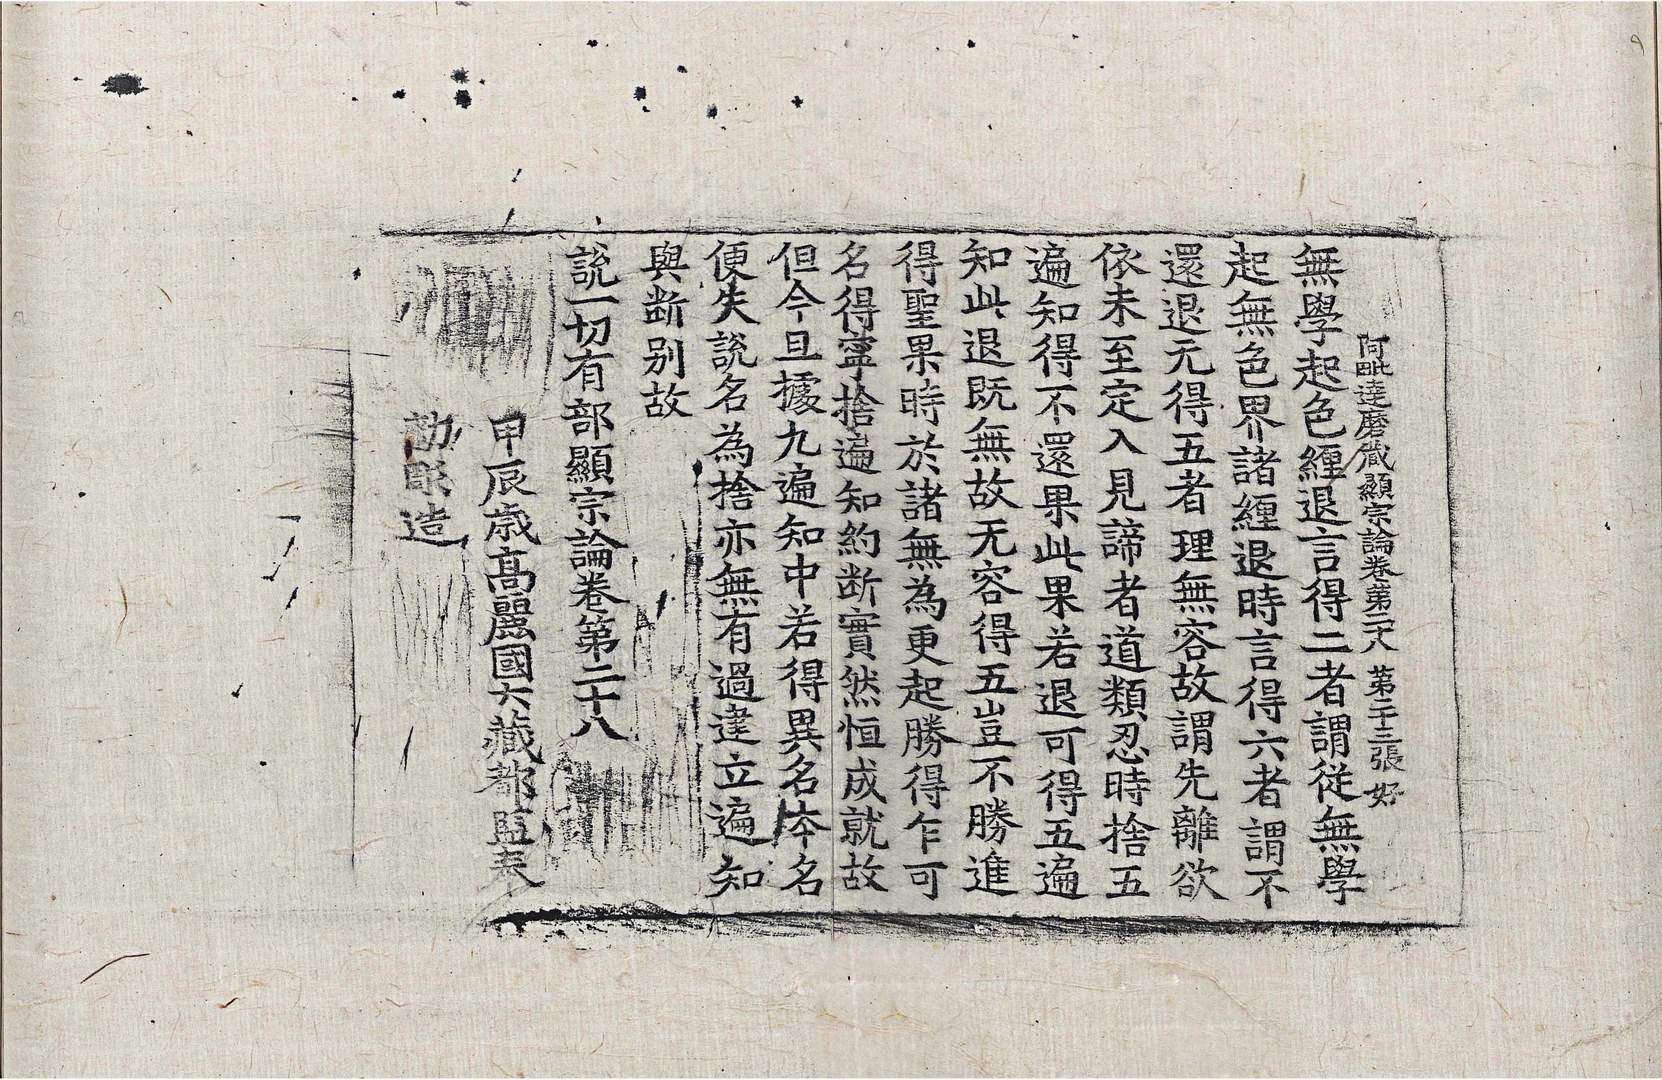 阿毗達磨藏顯宗論卷第二十八 第二十三張 好
無學起色纏退言得二者謂從無學
起無色界諸纏退時言得六者謂不
還退无得五者理無容故謂先離欲
依未至定入見諦者道類忍時捨五
遍知得不還果此果若退可得五遍
知此退既無故无容得五豈不勝進
得聖果時於諸無為更起勝得乍可
名得寧捨遍知約断實然恒成就故
但今且據九遍知中若得異名夲名
便失說名為捨亦無有過建立遍知
與断別故
說一切有部顯宗論卷第二十八
甲辰歲高麗國大藏都監奉
勑彫造